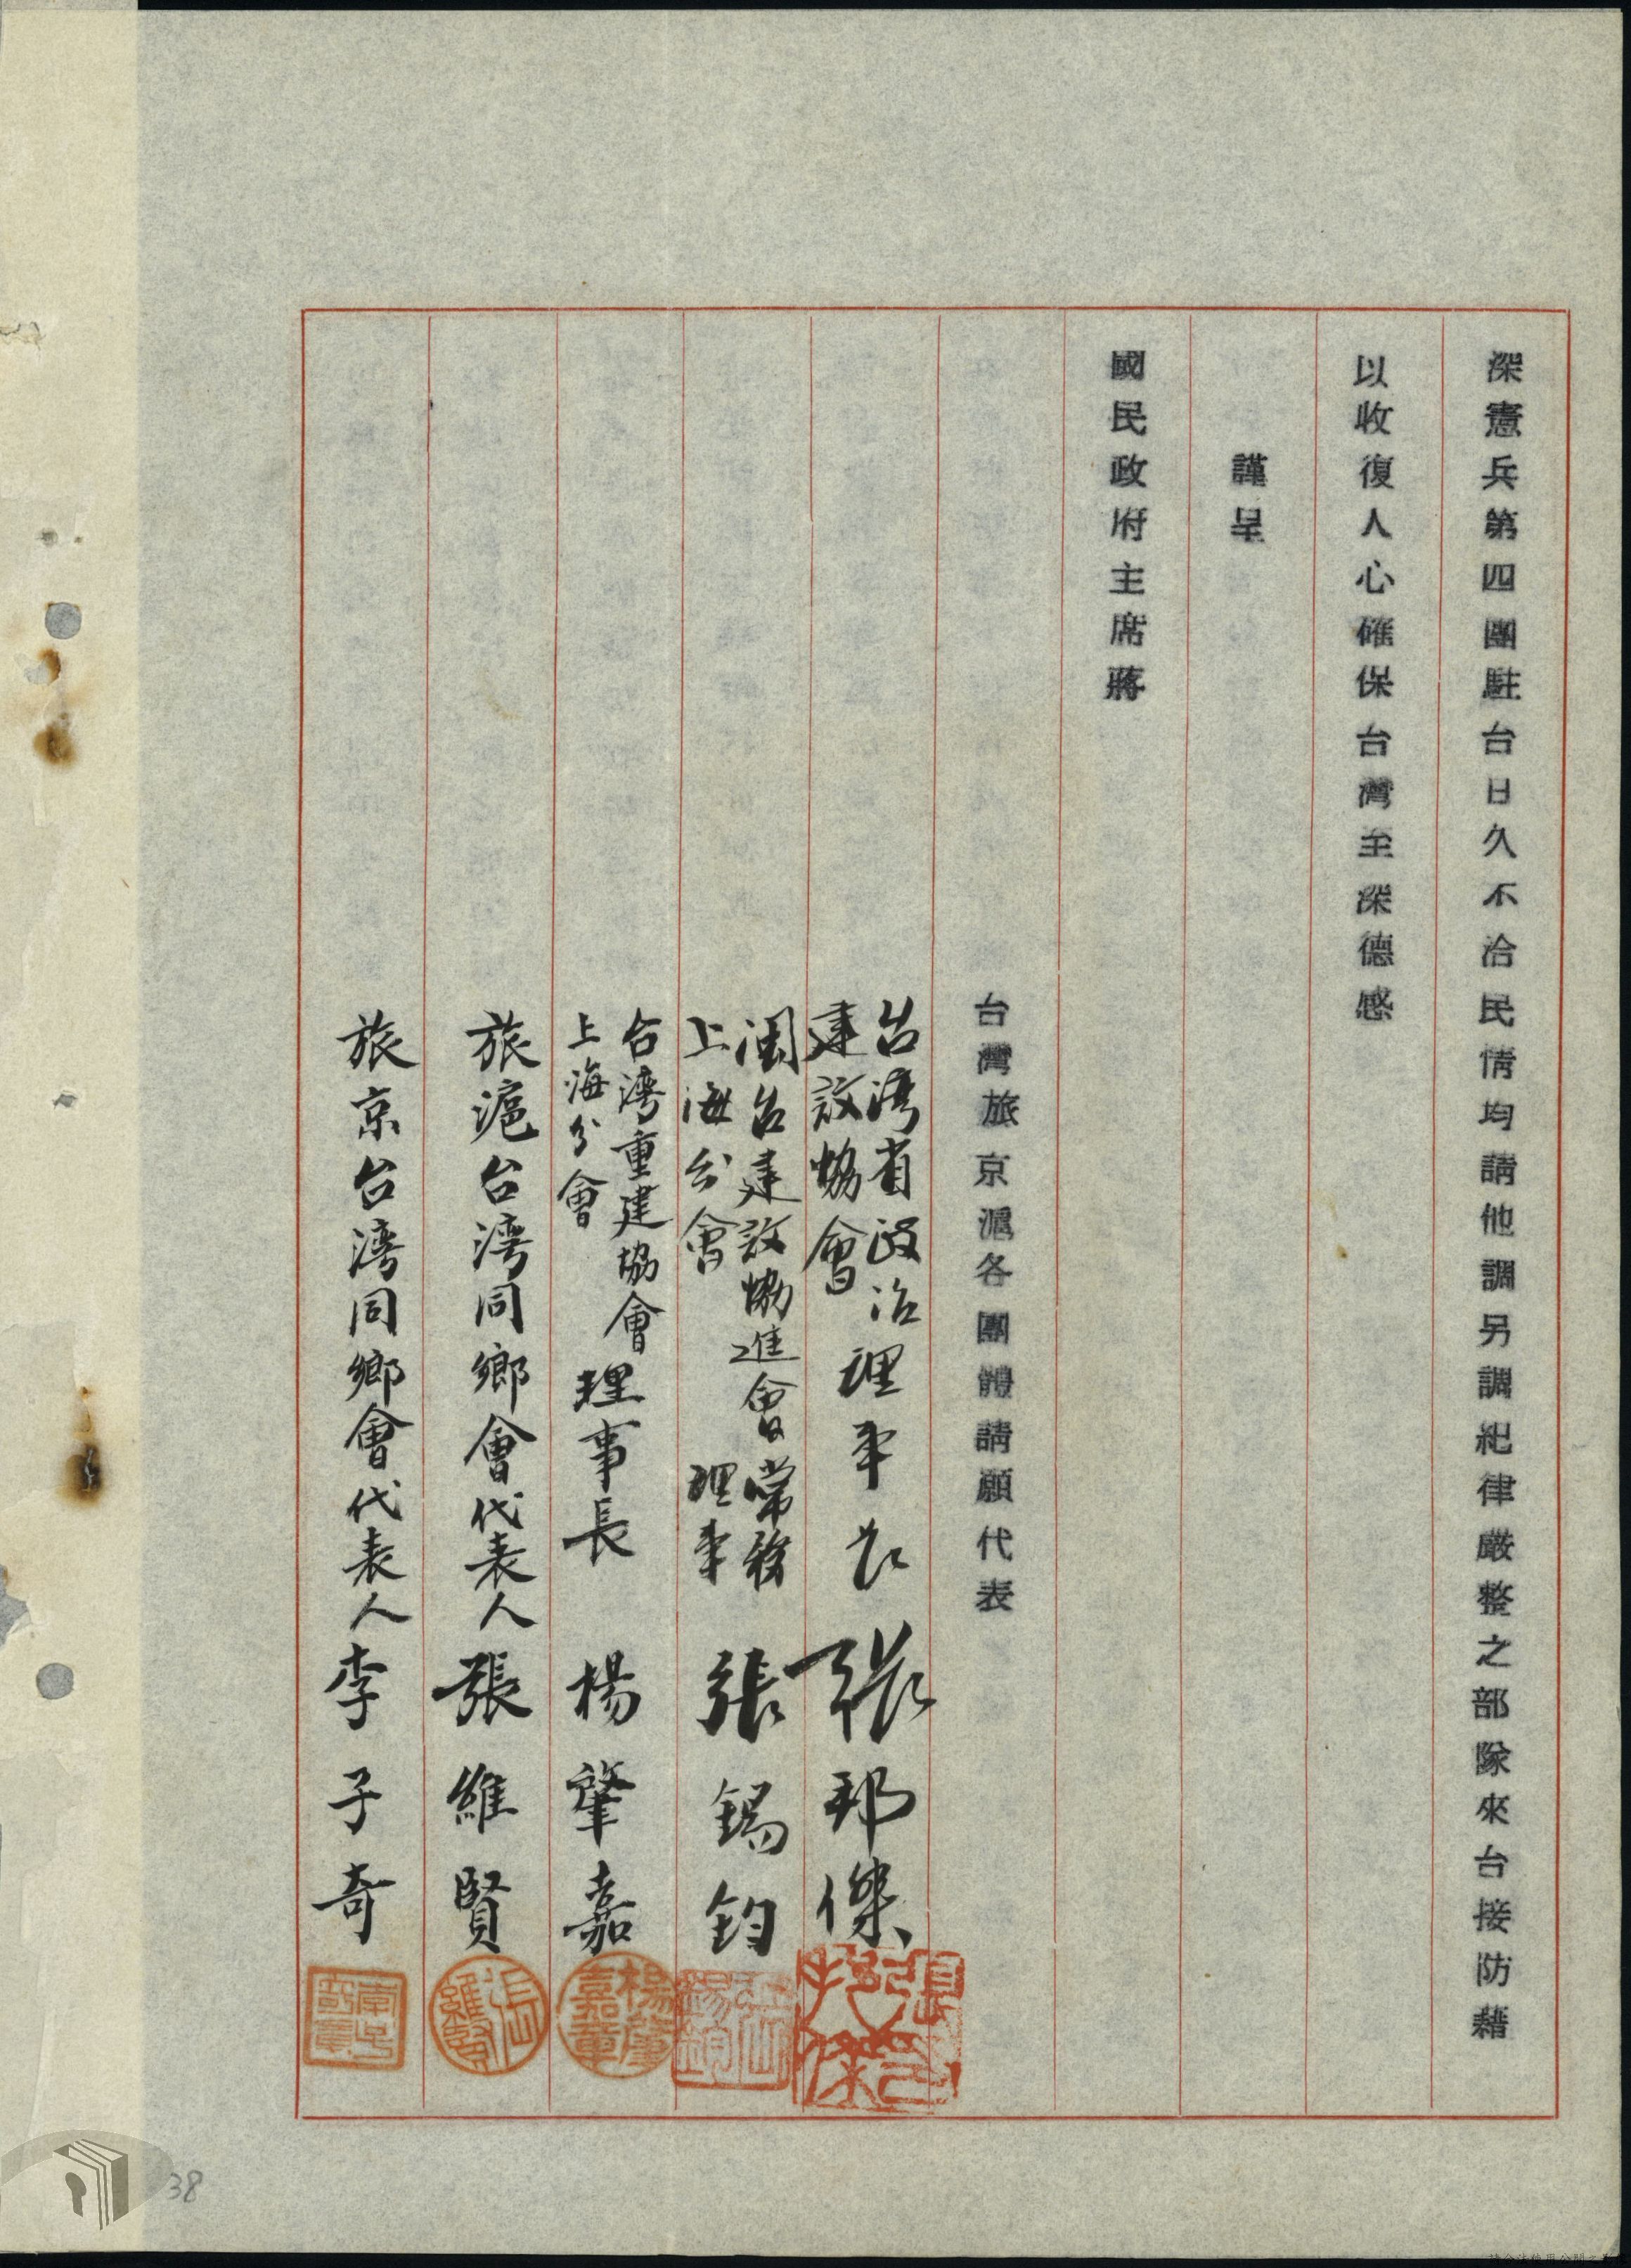 深憲兵第四團駐台日久不洽民情均請他調另調紀律嚴整之部隊來台接防藉
以收復人心確保台灣至深德感
謹呈
國民政府主席蔣
台灣旅京滬各團體請願代表
台湾省政治
建設協會
理事长 張邦傑
張邦傑印
閩台建設協進會常務
上海分會 理事
張錫鈞
台湾重建協會
上海分會
理事長 楊肇嘉
楊肇嘉章
旅滬台湾同鄉會代表人 張維賢
張維賢
旅京台湾同鄉會代表人 李子奇
38